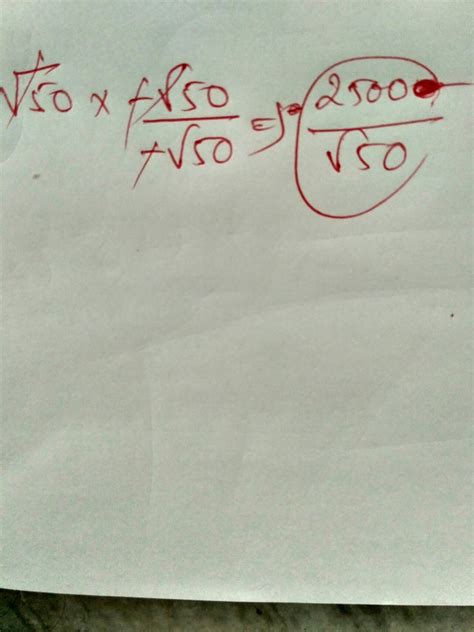 √50 × √50/√50 ⇒ 2500/√50